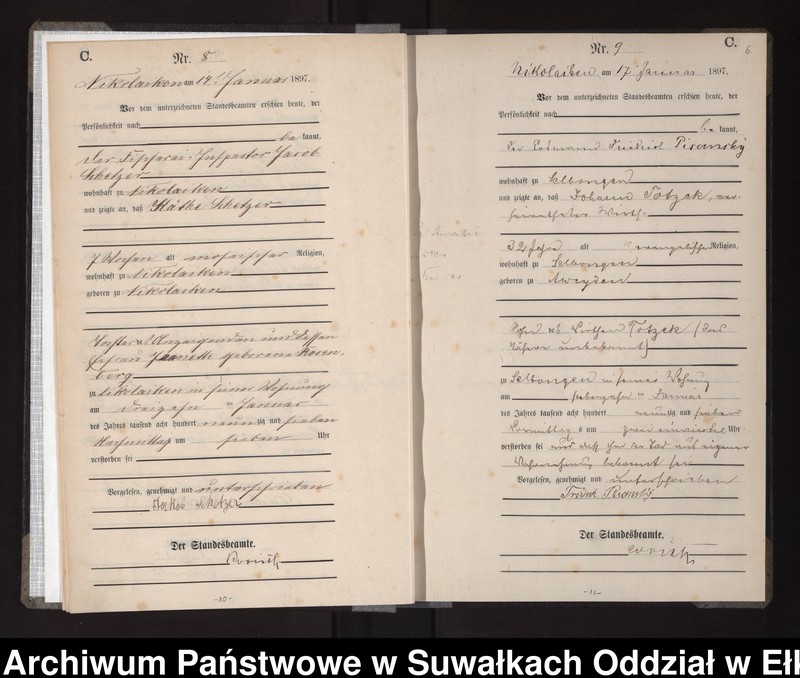 C.
Nr. 8
Nikolaiken am 14ten Januar 1897.
Vor dem unterzeichneten Standesbeamten erschien heute, der
Persönlichkeit nach
be kannt,
der Fischerei-Inspector Jacob
Schetzer
wohnhaft zu Nikolaiken
und zeigte an, daß Käthe Schetzer
7 Wochen alt mosaischer Religion,
wohnhaft zu Nikolaiken
geboren zu Nikolaiken
Tochter des Anzeigenden und dessen
Ehefrau Jeanette geborene Rosen-
berg
zu Nikolaiken in seiner Wohnung
am dreizehn ten Januar
des Jahres tausend acht hundert neunzig und sieben
Nachmittags um sieben Uhr
verstorben sei
Vorgelesen, genehmigt und unterschrieben
Jakob Schetzer
Der Standesbeamte.
-10-
C.
6
Nr. 9
Nikolaiken am 17 Januar 1897.
Vor dem unterzeichneten Standesbeamten erschien heute, der
Persönlichkeit nach
be kannt,
der Friedrich Pisansky
wohnhaft zu Selbongen
und zeigte an, daß Johann Totzek, ver-
heiratheter Wirth
32 Jahre alt evangelischer Religion,
wohnhaft zu Selbongen
geboren zu Aweyden
Sohn des Wirthen Totzek (das
Nähere unbekannt)
zu Selbongen in seiner Wohnung
am siebzehn ten Januar
des Jahres tausend acht hundert neunzig und sieben
Vormittags um zwei einviertel Uhr
verstorben sei und daß ihm der Tod aus eigener
Wahrnehmung bekannt sei
Vorgelesen, genehmigt und unterschrieben
Pisanski
Der Standesbeamte.
-11-
Archiwum Państwowe w Suwałkach Oddział w Ełk